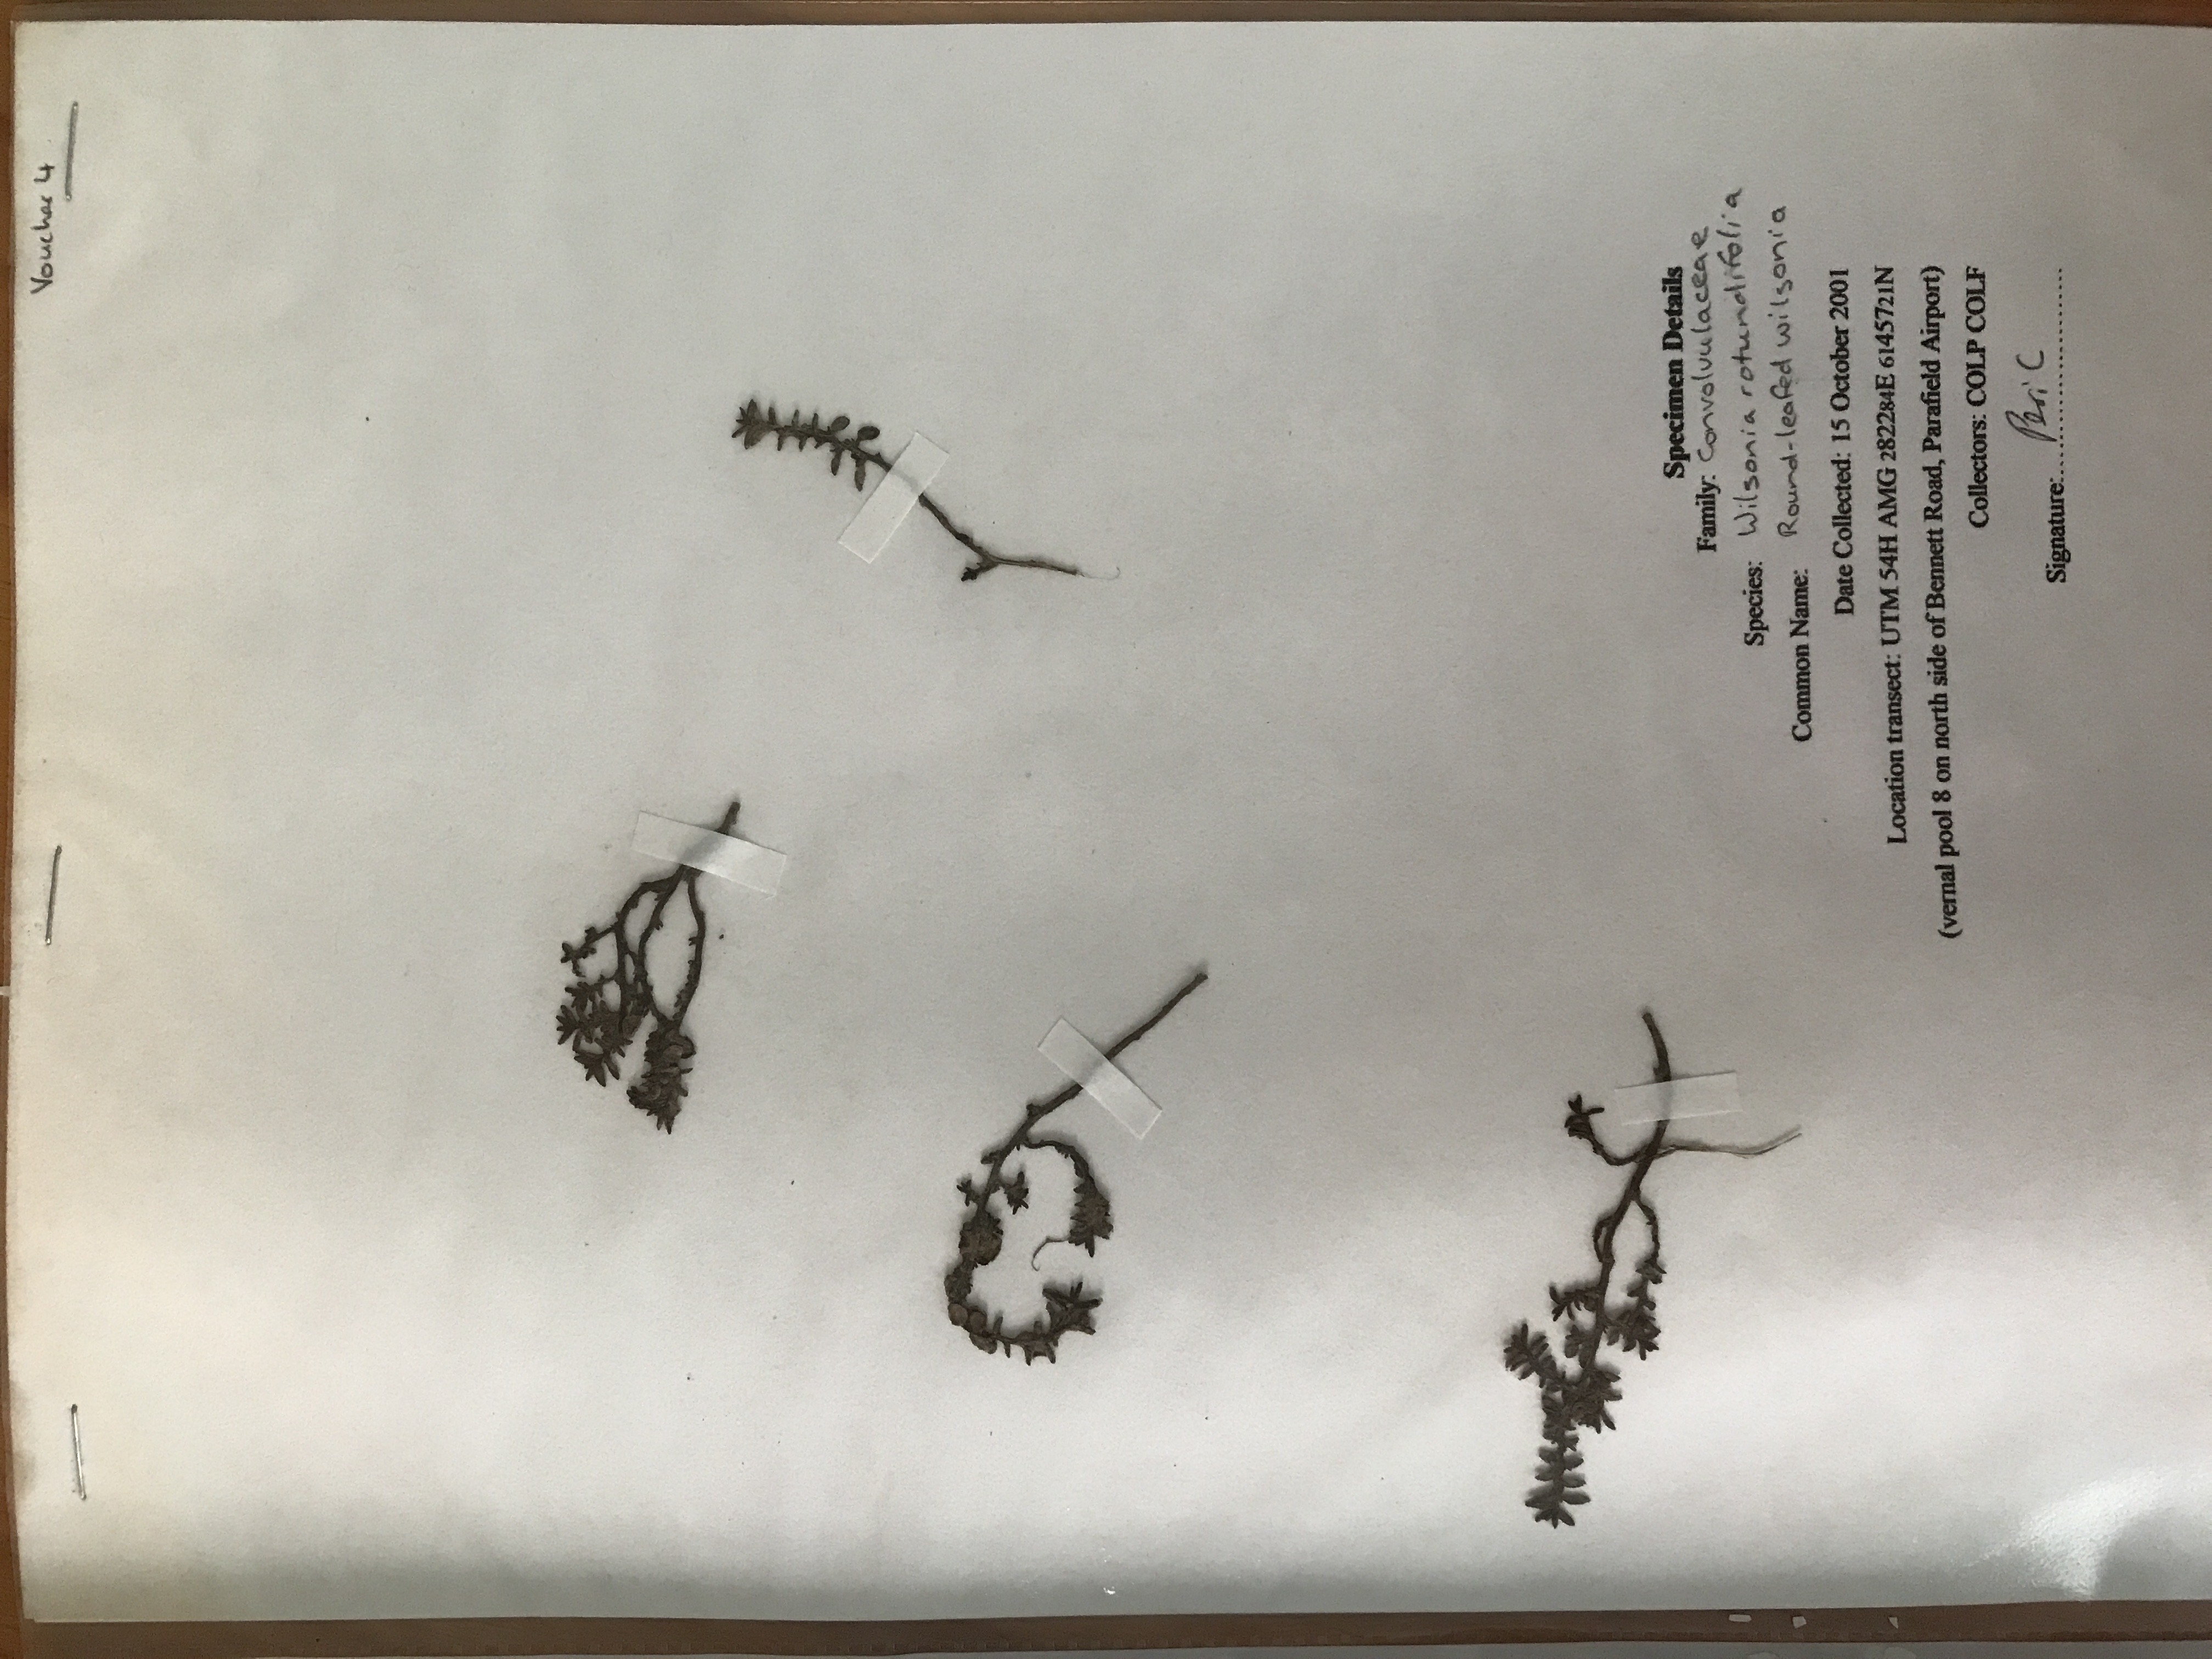 Voucher 4
Specimen Details
Family: Convolvulaceae
Species: Wilsonia rotundifolia
Common Name: Round-leafed wilsonia
Date Collected: 15 October 2001
Location transect: UTM 54H AMG 282284E 6145721N
(vernal pool 8 on north side of Bennett Road, Parafield Airport)
Collectors: COLP COLF
Signature:..........................
Peri C